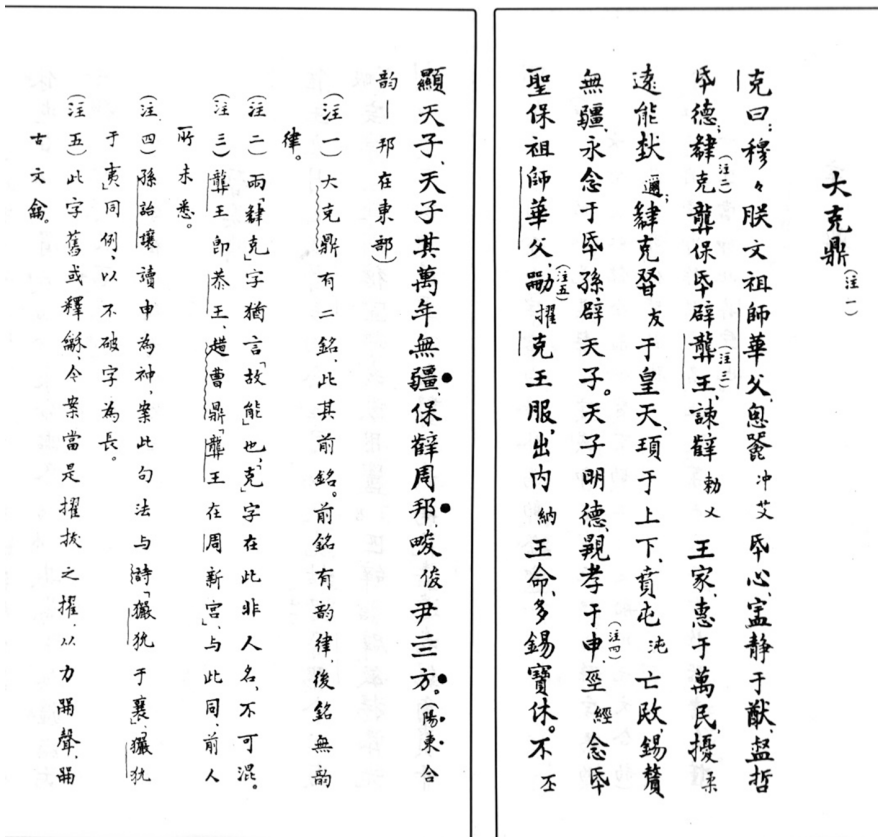 大克鼎(注一)
克曰:穆々朕文祖師華父,悤䜌冲艾氒心,寍静于猷,盄哲
氒德;肆(注二)克龏保氒辟龏(注三)王,諫辥勑乂王家,惠于萬民,擾柔
遠能埶邇;肆克友于皇天,頊于上下,賁屯沌亡敃,錫釐
無疆,永念于氒孫辟天子。天子明德,覭孝于申(注四),巠經念氒
聖保祖師華父,(注五)擢克王服,出内納王命,多錫寶休。不丕
顯天子,天子其萬年無疆,保辥周邦,畯俊尹三方。(陽東合
韵—邦在東部)
(注一)大克鼎有二銘,此其前銘。前銘有韵律,後銘無韵
律。
(注二)兩「肆克」字猶言「故能」也,「克」字在此非人名,不可混。
(注三)龏王即恭王,趞曹鼎「龏王在周新宫」,与此同,前人
所未悉。
(注四)孫詒讓讀申為神,案此句法与詩「玁狁于襄,玁狁
于夷」同例,以不破字為長。
(注五)此字舊或釋龢,今案當是擢拔之擢,从力聲,
古文龠。